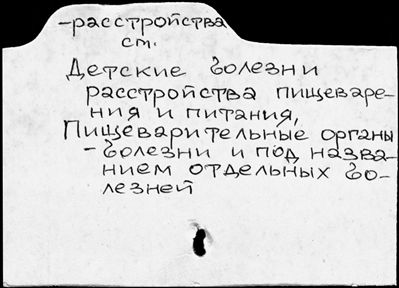 -расстройства
см.
Детские болезни
расстройства пищеваре-
ния и питания,
Пищеварительные органы
- болезни и под назва-
нием отдельных бо-
лезней